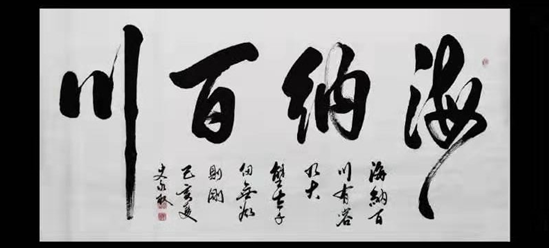 海納百川
海納百
川有容
乃大
壁立千
仞無欲
則剛
己亥夏